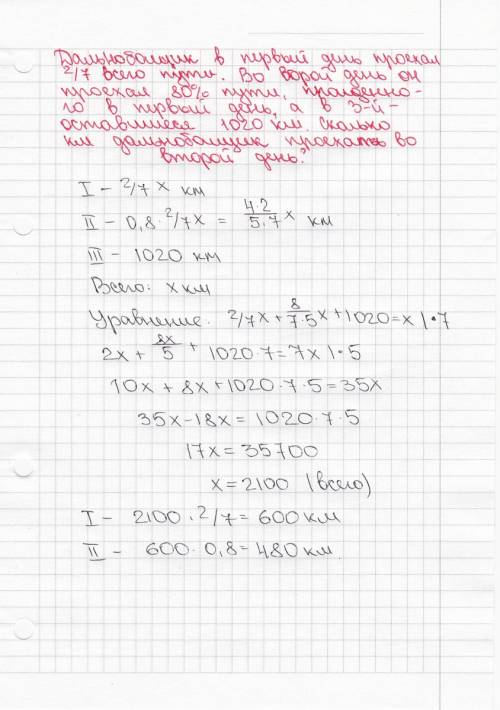 Дальнобойщик в первый день проехал
2/7 всего пути. Во ворой день он
проехал 80% пути, пройденно-
го в первый день, а в 3-й -
оставшиеся 1020 км. Сколько
км дальнобойщик проехал во
второй день?
I - 2/7 x км
II - 0,8 · 2/7x = 4·2/5·7 x км
III - 1020 км
Всего: x км
Уравнение: 2/7x + 8/7·5 x + 1020 = x | · 7
2x + 8x/5 + 1020·7 = 7x | · 5
10x + 8x + 1020 · 7 · 5 = 35x
35x - 18x = 1020 · 7 · 5
17x = 35700
x = 2100 (всего)
I - 2100 · 2/7 = 600 км
II - 600 · 0,8 = 480 км.